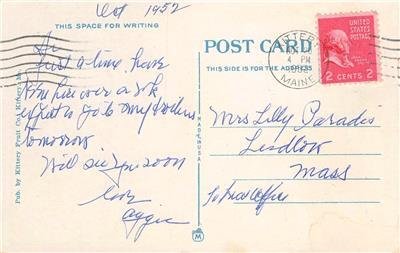 Oct 1952
THIS SPACE FOR WRITING
POST CARD
THIS SIDE IS FOR THE ADDRESS
KITTERY
4 PM
1952
MAINE
UNITED STATES POSTAGE
2 CENTS 2
Just a time here
been here over a wk
go to my
tomorrow
Will see you soon
Love
Aggie
Mrs Lilly Paradis
Ludlow
Mass
Pub. by Kittery Fruit Co., Kittery, Me.
MADE IN USA
M